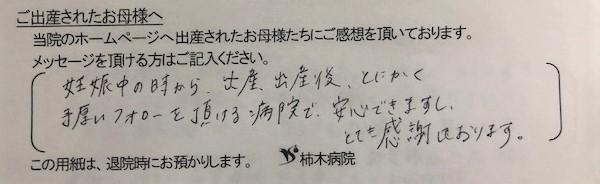 ご出産されたお母様へ
当院のホームページへ出産されたお母様たちにご感想を頂いております。
メッセージを頂ける方はご記入ください。
妊娠中の時から、出産、出産後、とにかく
手厚いフォローを頂ける病院で、安心できますし、
とても感謝しております。
この用紙は、退院時にお預かりします。 柿木病院